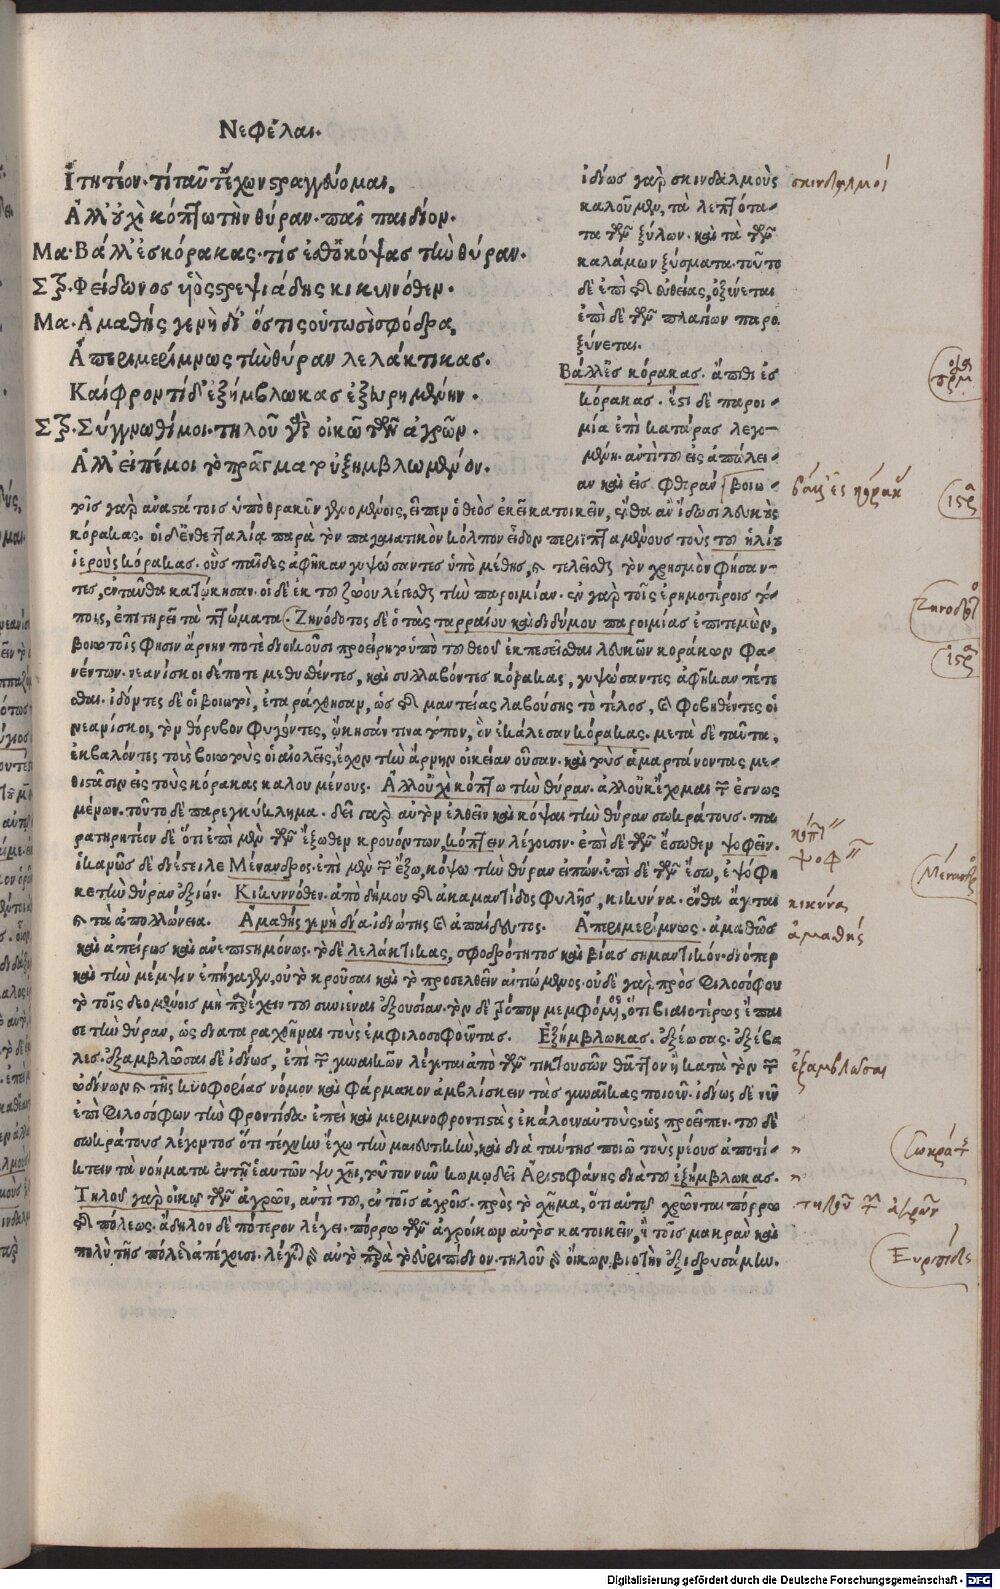 Νεφέλαι.
Ἰτητέον. τί ταῦτ' ἔχων στραγγεύομαι,
Ἀλλ' οὐχὶ κόπτω τὴν θύραν. παῖ παιδίον.
Μα. Βάλλ' ἐς κόρακας. τίς ἐσθ' ὁ κόψας τὴν θύραν.
Στρ. Φείδωνος υἱὸς στρεψιάδης κικυννόθεν.
Μα. Ἀμαθής γε νὴ δί' ὅστις οὑτωσὶ σφόδρα,
Ἀπεριμερίμνως τὴν θύραν λελάκτικας.
Καὶ φροντίδ' ἐξήμβλωκας ἐξευρημένην.
Στρ. Σύγγνωθί μοι. τηλοῦ γὰρ οἰκῶ τῶν ἀγρῶν.
Ἀλλ' εἰπέ μοι τὸ πρᾶγμα τοὐξημβλωμένον.
ἰδίως γὰρ σκινδαλμοὺς
καλοῦμεν, τὰ λεπτότα-
τα τῶν ξύλων. καὶ τὰ τῶν
καλάμων ξύσματα. τοῦτο
δὲ ἐπὶ τῆς εὐθείας, ὀξύνεται
ἐπὶ δὲ τῶν πλαγίων παρο
ξύνεται.
Βάλλ' ἐς κόρακας. ἄπιθι ἐς
κόρακας. ἔστι δὲ παροι-
μία ἐπὶ κατάρας λεγο-
μένη. ἀντὶ τοῦ εἰς ἀπώλει-
αν καὶ εἰς φθοράν βοιω-
τοῖς γὰρ ἀναστάτοις ὑπὸ θρακῶν γενομένοις, εἶπεν ὁ θεὸς ἐκεῖ κατοικεῖν, ἔνθα ἂν ἴδωσι λευκοὺς
κόρακας. οἱ δ' ἐν θετταλίᾳ παρὰ τὸν παγασιτικὸν κόλπον εἶδον περιϊπταμένους τοὺς τοῦ ἡλίου
ἱεροὺς κόρακας. οὓς παῖδες ἀφῆκαν γυψώσαντες ὑπὸ μέθης, καὶ τελεῖσθαι τὸν χρησμὸν φήσαν-
τες, ἐνταῦθα κατῴκησαν. οἱ δὲ ἐκ τοῦ ζώου λέγεσθαι τὴν παροιμίαν. ἐν γὰρ τοῖς ἐρημοτέροις τό-
ποις, ἐπιτηρεῖ τὰ πτώματα. Ζηνόδοτος δὲ ὁ τὰς ταρραίου καὶ διδύμου παροιμίας ἐπιτεμών,
βοιωτοῖς φησιν ἄρνην ποτὲ ἐνοικοῦσι προείρητο ὑπὸ τοῦ θεοῦ ἐκπεσεῖσθαι λευκῶν κοράκων φα-
νέντων. νεανίσκοι δέ ποτε μεθυσθέντες, καὶ συλλαβόντες κόρακας, γυψώσαντες ἀφῆκαν πέτε
σθαι. ἰδόντες δὲ οἱ βοιωτοὶ, ἐταράχθησαν, ὡς τῆς μαντείας λαβούσης τὸ τέλος, καὶ φοβηθέντες οἱ
νεανίσκοι, τὸν θόρυβον φυγόντες, ᾤκησάν τινα τόπον, ὃν ἐκάλεσαν κόρακας. μετὰ δὲ ταῦτα,
ἐκβαλόντες τοὺς βοιωτοὺς οἱ αἰολεῖς, ἔχον τὴν ἄρνην οἰκείαν οὖσαν. καὶ τοὺς ἁμαρτάνοντας με-
θιστᾶσιν εἰς τοὺς κόρακας καλουμένους. Ἀλλ' οὐχὶ κόπτω τὴν θύραν. ἀλλ' οὐκ ἔχομαι τῆς ἐγνως
μένων. τοῦτο δὲ παρεγκύκλημα. δεῖ γὰρ αὐτὸν ἐλθεῖν καὶ κόψαι τὴν θύραν σωκράτους. πα
ρατηρητέον δὲ ὅτι ἐπὶ μὲν τῶν ἔξωθεν κρουόντων, κόπτειν λέγουσιν. ἐπὶ δὲ τῶν ἔσωθεν ψοφεῖν.
ἱκανῶς δὲ διέστειλε Μένανδρος. ἐπὶ μὲν τῶν ἔξω, κόψω τὴν θύραν εἰπών. ἐπὶ δὲ τῶν ἔσω, ἐψόφη
κε τὴν θύραν ἐξιών. Κικυννόθεν. ἀπὸ δήμου τῆς ἀκαμαντίδος φυλῆς, κικύννα. ἔνθα ἄγεται
καὶ τὰ ἀπολλώνεια. Ἀμαθής γε νὴ δία. ἰδιώτης καὶ ἀπαίδευτος. Ἀπεριμερίμνως. ἀμαθῶς
καὶ ἀπείρως καὶ ἀνεπιστημόνως. τὸ δὲ λελάκτικας, σφοδρότητος καὶ βίας σημαντικόν. διόπερ
καὶ τὴν μέμψιν ἐπήγαγεν, οὐ τὸ κροῦσαι καὶ τὸ προσελθεῖν αἰτιώμενος. οὐδὲ γὰρ πρὸς φιλοσόφου
τὸ τοῖς δεομένοις μὴ παρέχειν τοῦ συνιέναι ἐξουσίαν. τὸν δὲ τρόπον μεμφόμενος, ὅτι βιαιοτέρως ἔπαι
σε τὴν θύραν, ὡς διαταραχθῆναι τοὺς ἐμφιλοσοφοῦντας. Ἐξήμβλωκας. ἐξέωσας. ἐξέβα
λες. ἐξαμβλῶσαι δὲ ἰδίως, ἐπὶ τῶν γυναικῶν λέγεται ἀπὸ τῶν τικτουσῶν θᾶττον ἢ κατὰ τὸν τῶν
ὠδίνων καὶ τῆς κυοφορίας νόμον καὶ φάρμακον ἀμβλίσκειν τὰς γυναῖκας ποιοῦν. ἰδίως δὲ νῦν
ἐπὶ φιλοσόφων τὴν φροντίδα. ἐπεὶ καὶ μεριμνοφροντιστὰς ἐκάλουν αὐτοὺς, ὡς προεῖπεν. τοῦ δὲ
σωκράτους λέγοντος ὅτι τέχνην ἔχω τὴν μαιευτικὴν, καὶ διὰ ταύτης ποιῶ τοὺς νέους ἀποτί-
κτειν τὰ νοήματα ἐν τῇ ἑαυτῶν ψυχῇ, τοῦτον νῦν κωμῳδεῖ Ἀριστοφάνης διὰ τοῦ ἐξήμβλωκας.
Τηλοῦ γὰρ οἰκῶ τῶν ἀγρῶν, ἀντὶ τοῦ, ἐν τοῖς ἀγροῖς. πρὸς τὸ χρῆμα, ὅτι αὐτῷ χρῶνται πόρρω
τῆς πόλεως. ἄδηλον δὲ πότερον λέγει. πόρρω τῶν ἀγροίκων αὐτὸς κατοικεῖν, ἢ τοῖς μακρὰν καὶ
πολὺ τῆς πόλεως ἀπέχουσι. λέγει δὲ αὐτὸ παρὰ τὸ εὐριπίδιον. τηλοῦ γὰρ οἴκων, βιοτὴν ἐξιδρυσάμην.
σκινδαλμοί
βάλλ' ἐς κόρακ
Ζηνόδοτ
κόπτ"
ψοφ"
Μένανδρ
κικύννα
ἀμαθής
ἐξαμβλῶσαι
Σωκράτ
τηλοῦ τῶν ἀγρῶν
Εὐριπίδης
Digitalisierung gefördert durch die Deutsche Forschungsgemeinschaft - DFG